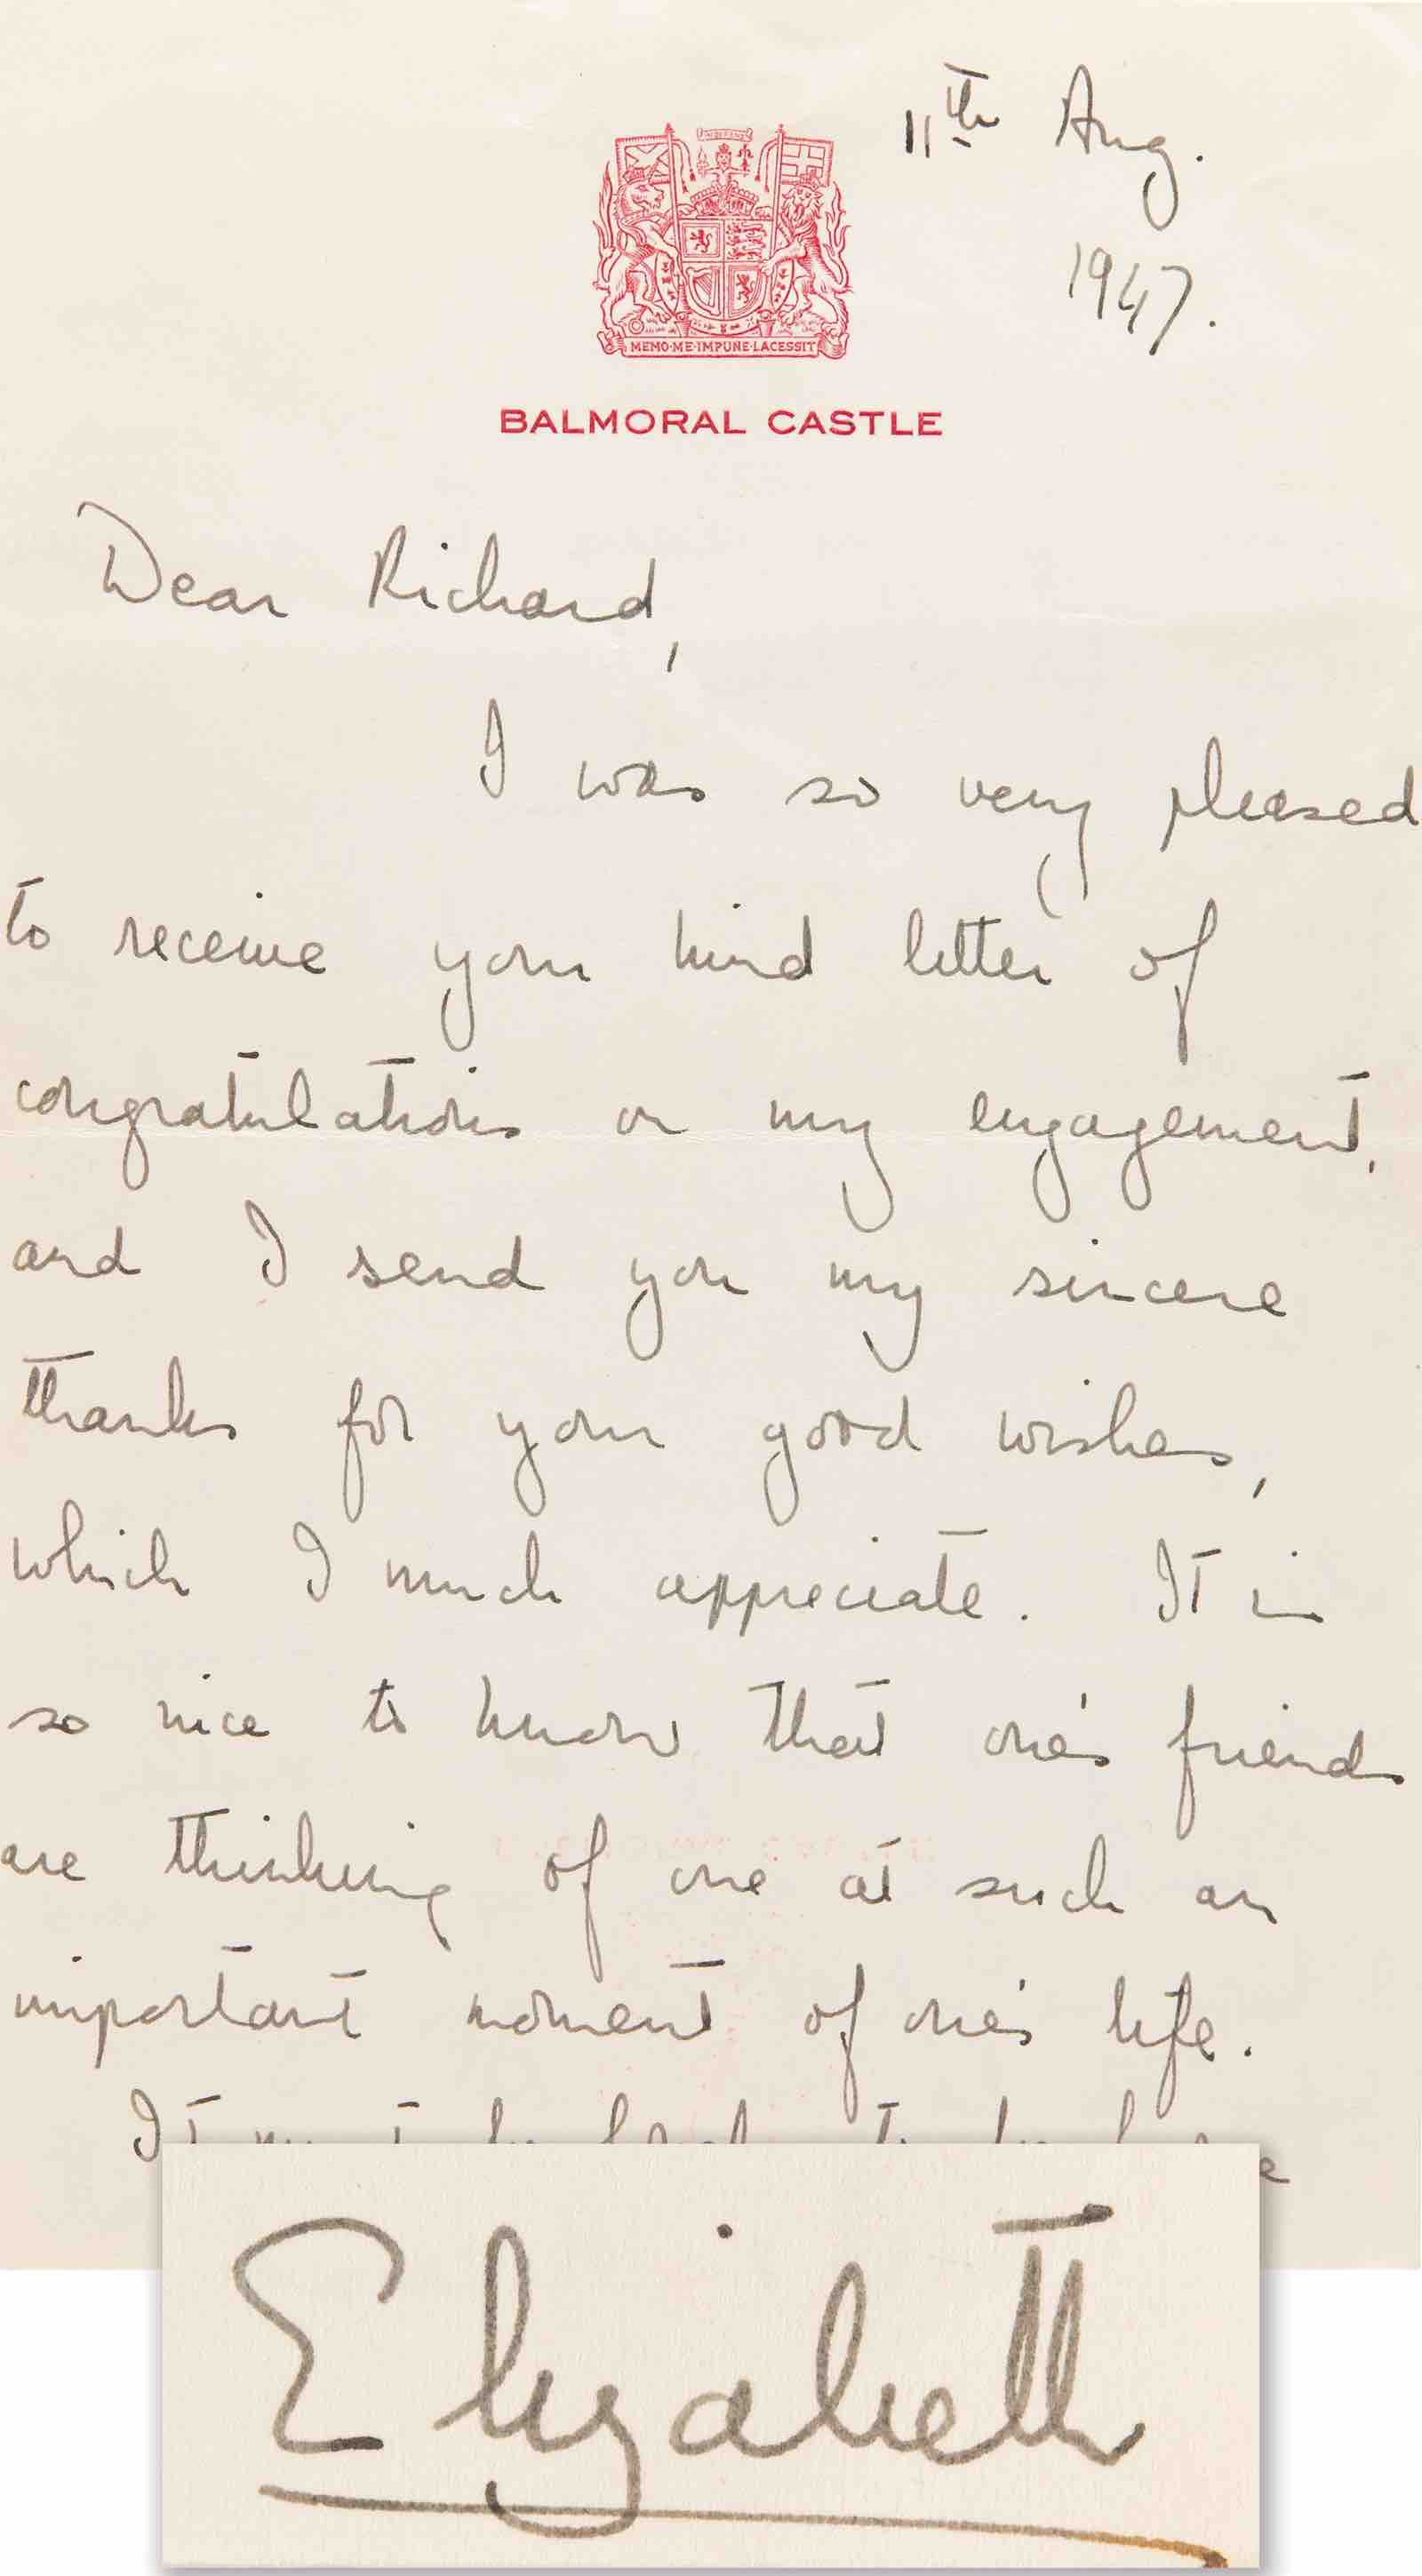 11th Aug.
1947.
NEMO·ME·IMPUNE·LACESSIT
BALMORAL CASTLE
Dear Richard,
I was so very pleased
to receive your kind letter of
congratulations on my engagement,
and I send you my sincere
thanks for your good wishes,
which I much appreciate. It is
so nice to know that one's friends
are thinking of one at such an
important moment of one's life.
It
Elizabeth